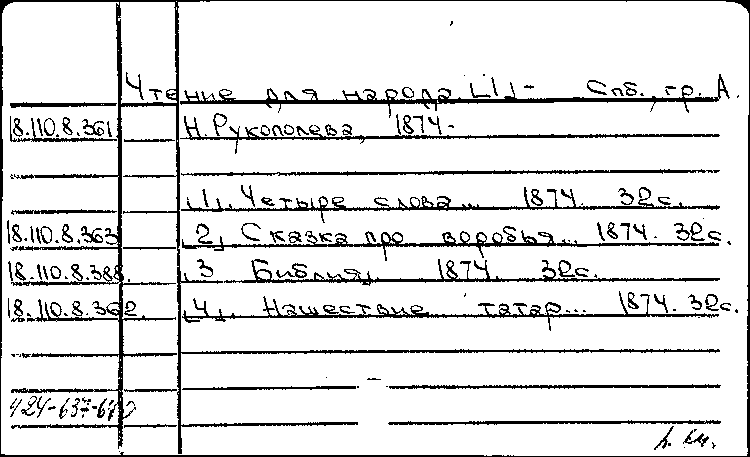 Чтение для народа [1]- Спб., гр. А.
18.110.8.361 Н.Рукополева, 1874-
[1]. Четыре слова... 1874. 32с.
18.110.8.363 [2] Сказка про воробья... 1874. 32с.
18.110.8.388. [3 Библия]. 1874. 32с.
18.110.8.362. [4]. Нашествие татар... 1874. 32с.
424-637-640